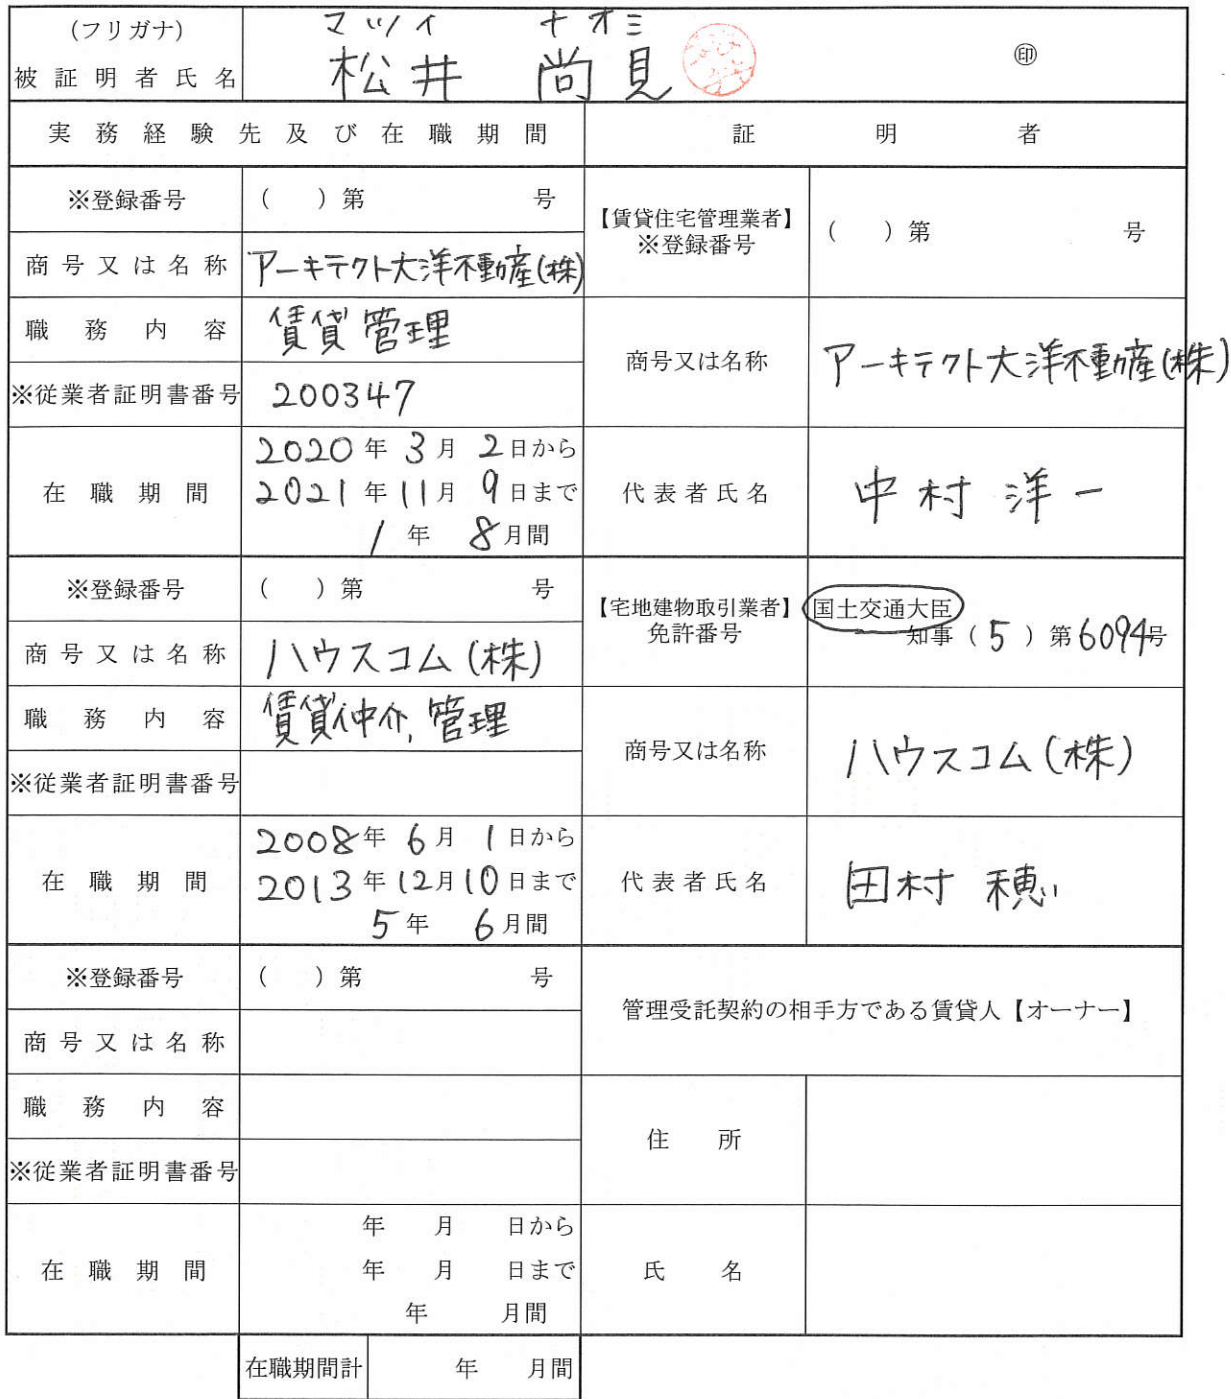 (フリガナ) マツイ ナオミ
被証明者氏名 松井 尚見 ㊞
実務経験先及び在職期間 証明者
※登録番号 ( )第 号 【賃貸住宅管理業者】 ※登録番号 ( )第 号
商号又は名称 アーキテクト大洋不動産(株)
職務内容 賃貸管理 商号又は名称 アーキテクト大洋不動産(株)
※従業者証明書番号 200347
在職期間 2020年3月2日から
2021年11月9日まで 代表者氏名 中村 洋一
1年 8月間
※登録番号 ( )第 号 【宅地建物取引業者】 免許番号 国土交通大臣
知事(5)第6094号
商号又は名称 ハウスコム(株)
職務内容 賃貸仲介,管理 商号又は名称 ハウスコム(株)
※従業者証明書番号
在職期間 2008年6月1日から
2013年12月10日まで 代表者氏名 田村 穂
5年 6月間
※登録番号 ( )第 号 管理受託契約の相手方である賃貸人【オーナー】
商号又は名称
職務内容 住所
※従業者証明書番号
在職期間 年 月 日から
年 月 日まで 氏名
年 月間
在職期間計 年 月間